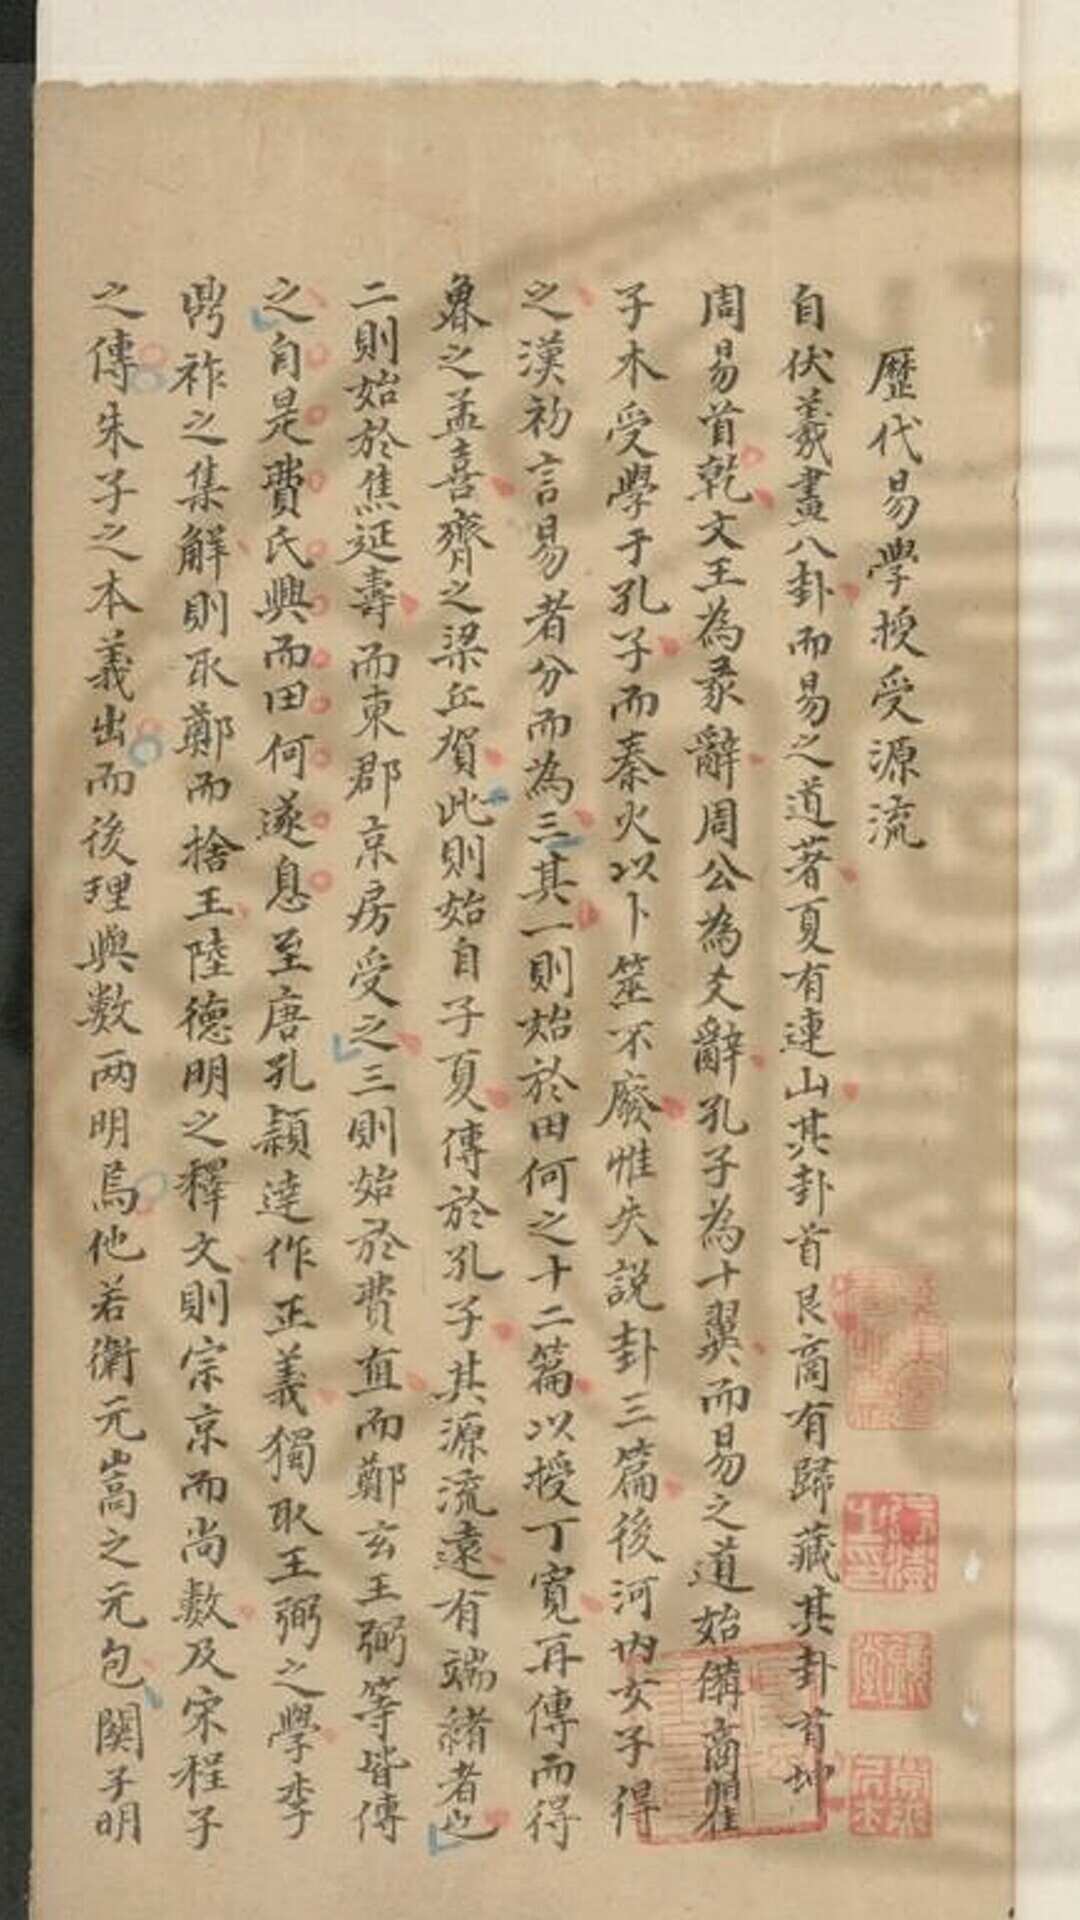 歷代易學授受源流
自伏羲畫八卦而易之道著夏有連山其卦首艮商有歸藏其卦首坤
周易首乾文王為彖辭周公為爻辭孔子為十翼而易之道始備商瞿
子木受學于孔子而秦火以卜筮不廢惟失說卦三篇後河內女子得
之漢初言易者分而為三其一則始於田何之十二篇以授丁寬再傳而得
之孟喜齊之梁丘賀此則始自子夏傳於孔子其源流遠有端緒者也
二則始於焦延壽而東郡京房受之三則始於費直而鄭玄王弼等皆傳
之自是費氏興而田何遂息至唐孔穎達作正義獨取王弼之學李
鼎祚之集解則取鄭而捨王陸德明之釋文則宗京而尚數及宋程子
之傳朱子之本義出而後理與數兩明焉他若衛元嵩之元包關子明